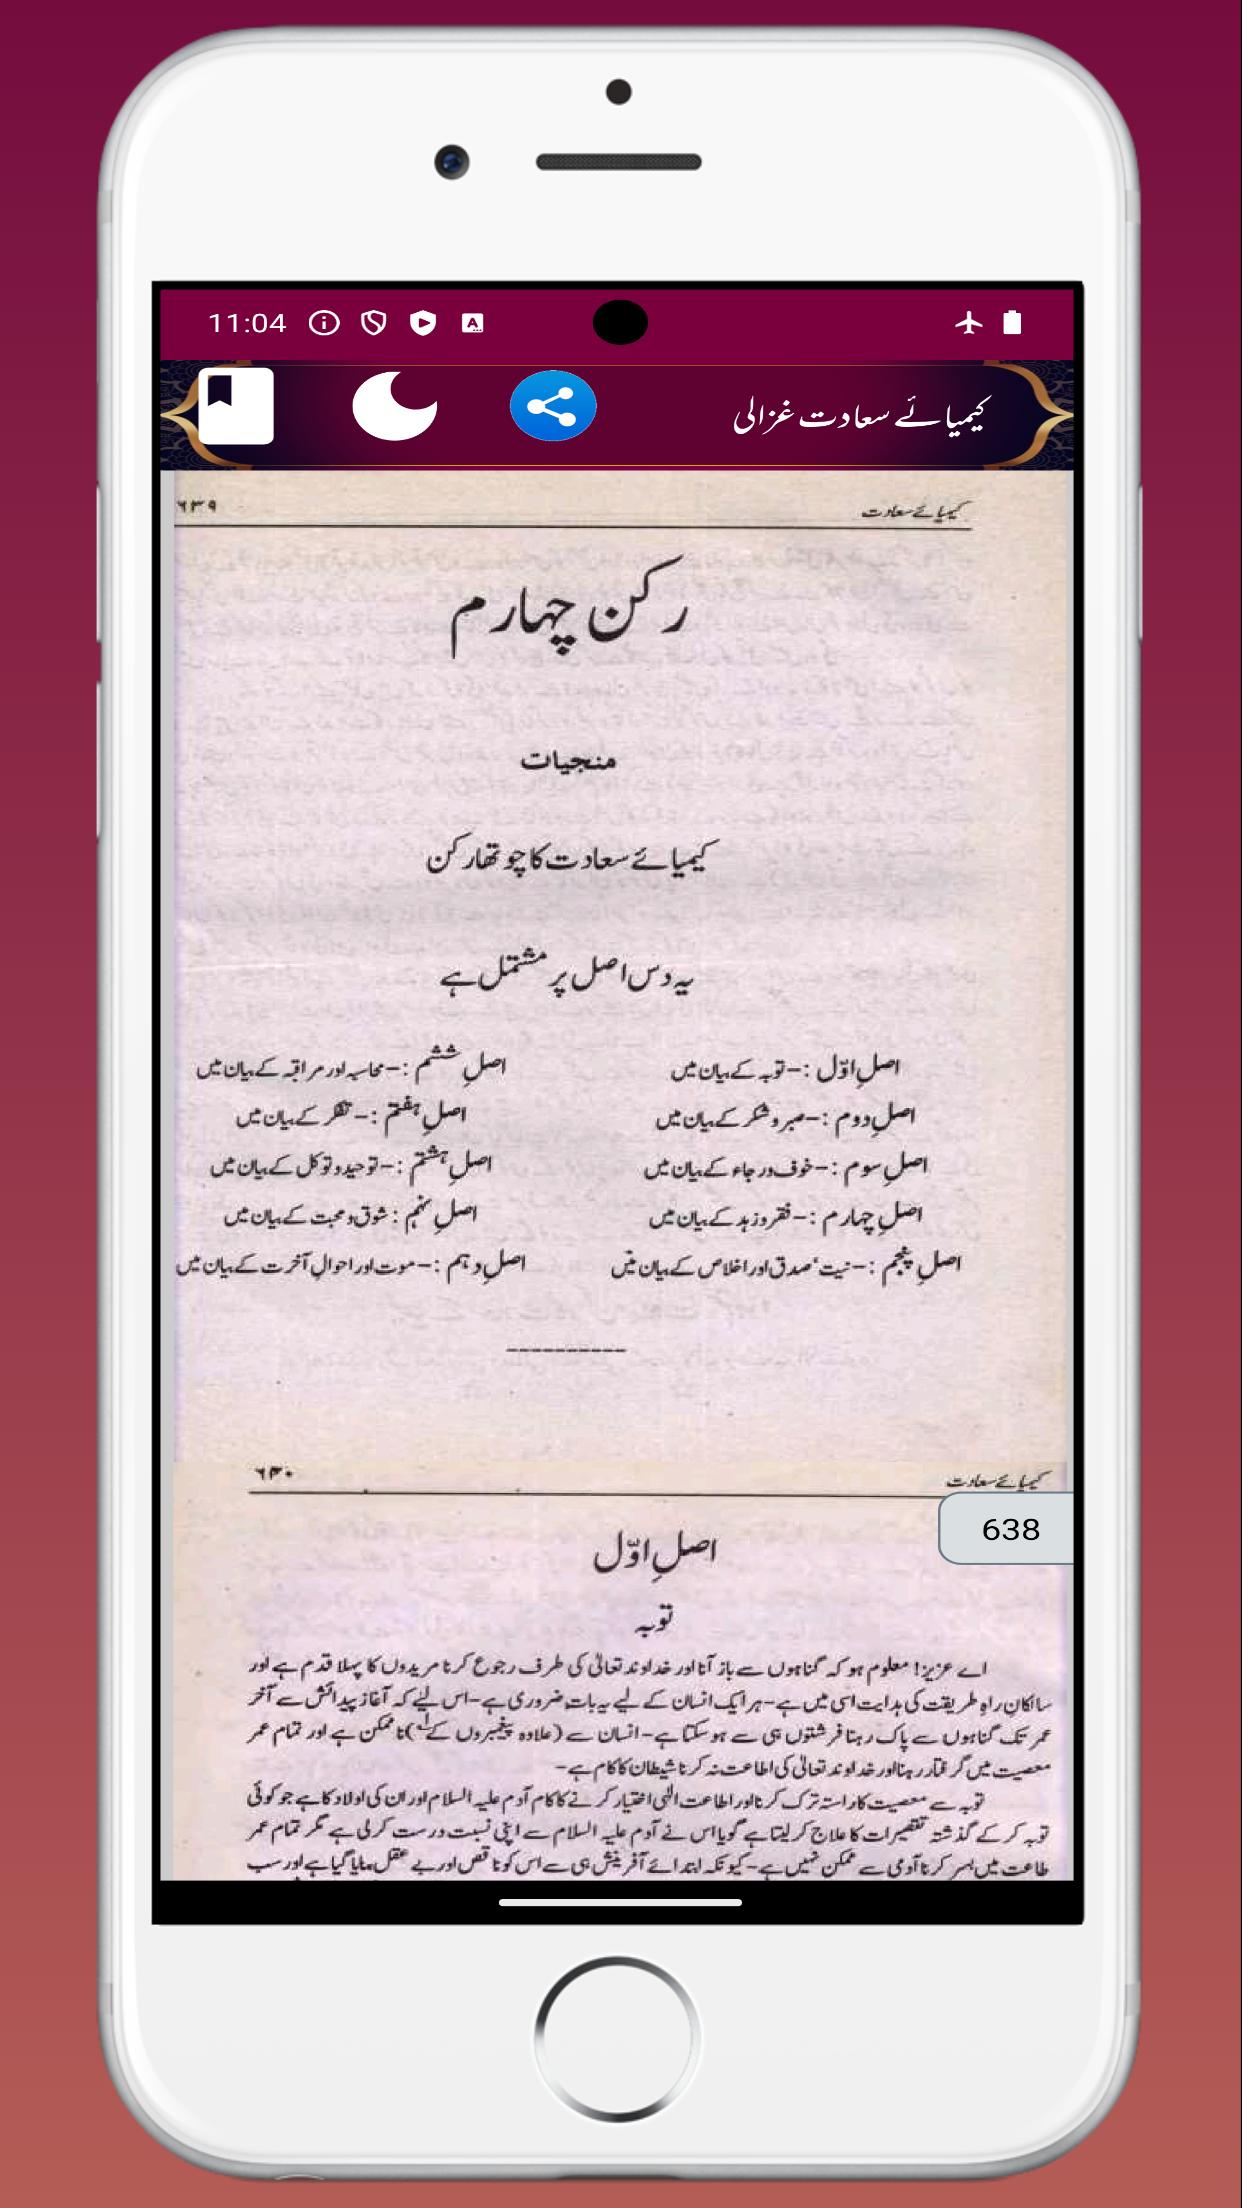 11:04
کیمیائے سعادت غزالی
کیمیائے سعادت
۶۳۹
رکن چہارم
منجیات
کیمیائے سعادت کا چوتھا رکن
یہ دس اصل پر مشتمل ہے
اصلِ اوّل :- توبہ کے بیان میں
اصلِ دوم :- صبر و شکر کے بیان میں
اصلِ سوم :- خوف و رجاء کے بیان میں
اصلِ چہارم :- فقر و زہد کے بیان میں
اصلِ پنجم :- نیت، صدق اور اخلاص کے بیان میں
اصلِ ششم :- محاسبہ اور مراقبہ کے بیان میں
اصلِ ہفتم :- تفکر کے بیان میں
اصلِ ہشتم :- توحید و توکل کے بیان میں
اصلِ نہم : شوق و محبت کے بیان میں
اصلِ دہم :- موت اور احوالِ آخرت کے بیان میں
کیمیائے سعادت
۶۴۰
638
اصلِ اوّل
توبہ
اے عزیز! معلوم ہو کہ گناہوں سے باز آنا اور خداوند تعالیٰ کی طرف رجوع کرنا مریدوں کا پہلا قدم ہے اور
سالکانِ راہِ طریقت کی ہدایت اسی میں ہے- ہر ایک انسان کے لیے یہ بات ضروری ہے- اس لیے کہ آغاز پیدائش سے آخر
عمر تک گناہوں سے پاک رہنا فرشتوں ہی سے ہو سکتا ہے- انسان سے (علاوہ پیغمبروں کے) ناممکن ہے اور تمام عمر
معصیت میں گرفتار رہنا اور خداوند تعالیٰ کی اطاعت نہ کرنا شیطان کا کام ہے-
توبہ سے معصیت کا راستہ ترک کرنا اور اطاعت الٰہی اختیار کرنے کا کام آدم علیہ السلام اور ان کی اولاد کا ہے جو کوئی
توبہ کر کے گذشتہ تقصیرات کا علاج کر لیتا ہے گویا اس نے آدم علیہ السلام سے اپنی نسبت درست کر لی ہے مگر تمام عمر
طاعت میں بسر کرنا آدمی سے ممکن نہیں ہے- کیونکہ ابتدائے آفرینش ہی سے اس کو ناقص اور بے عقل بنایا گیا ہے اور سب